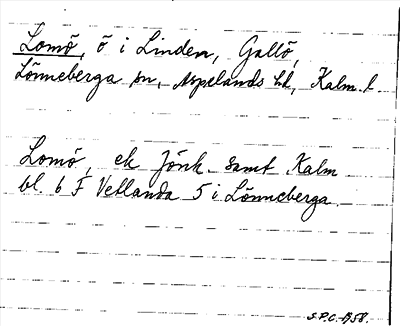 Lomö, ö i Linden, Gallö,
Lönneberga sn, Aspelands hd, Kalm. l
Lomö, ek Jönk. samt Kalm
bl. 6 F Vetlanda 5 i Lönneberga.
S.P.C. 1958.